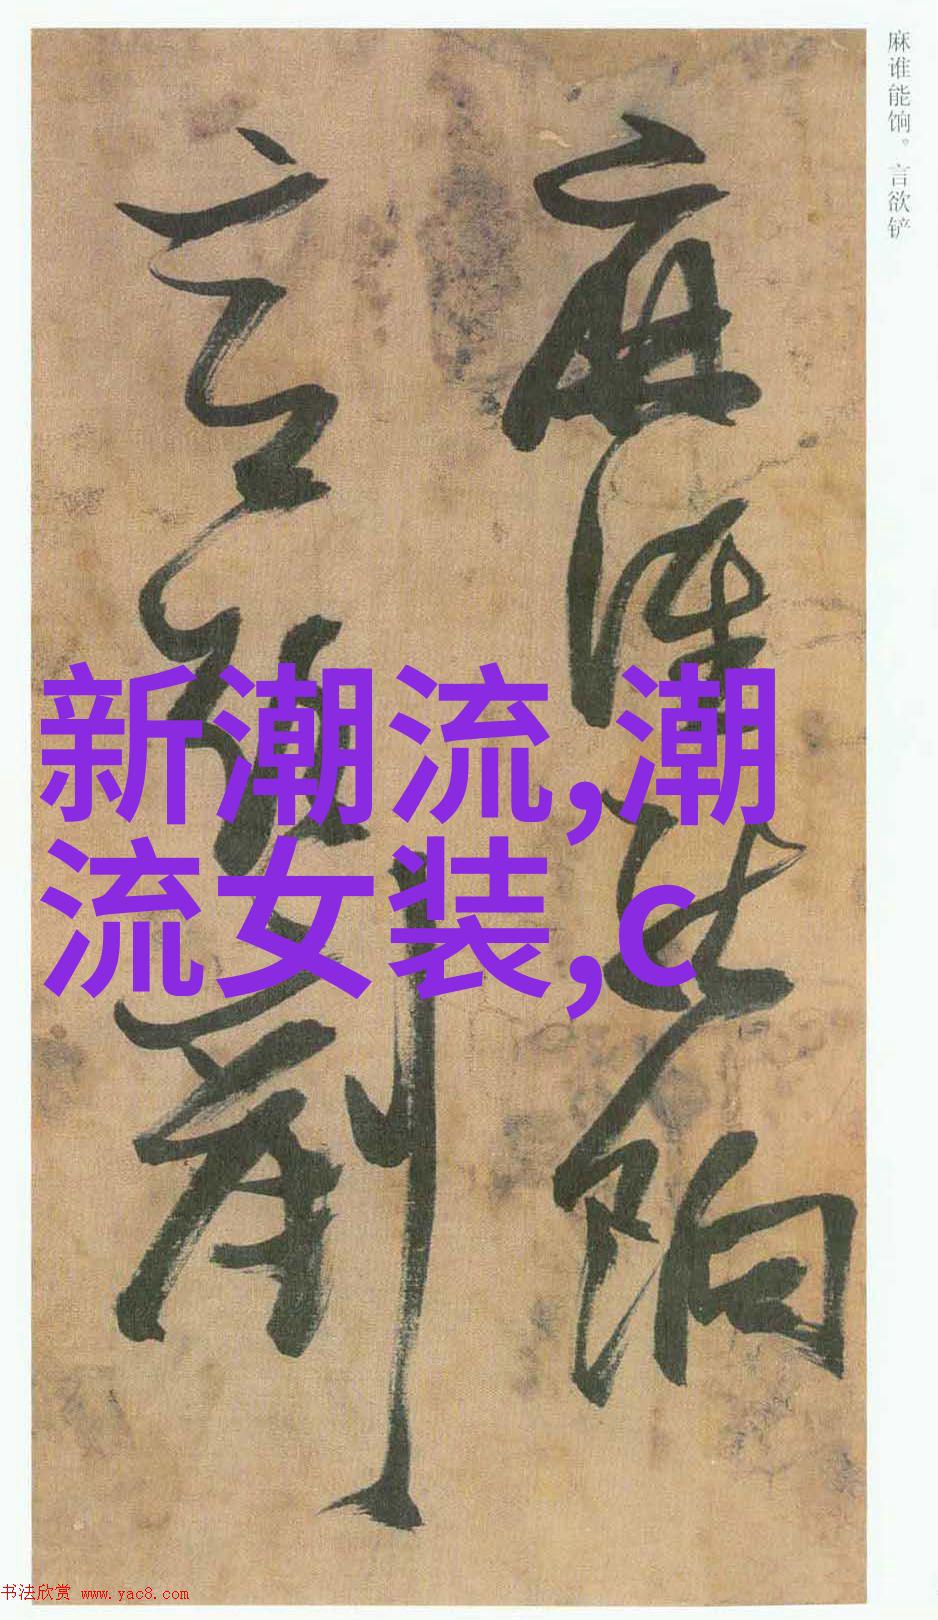 麻谁能饷。言欲铲
麻誰能餉
言欲剷
新潮流,潮
流女装,c
书法欣赏 www.yac8.com